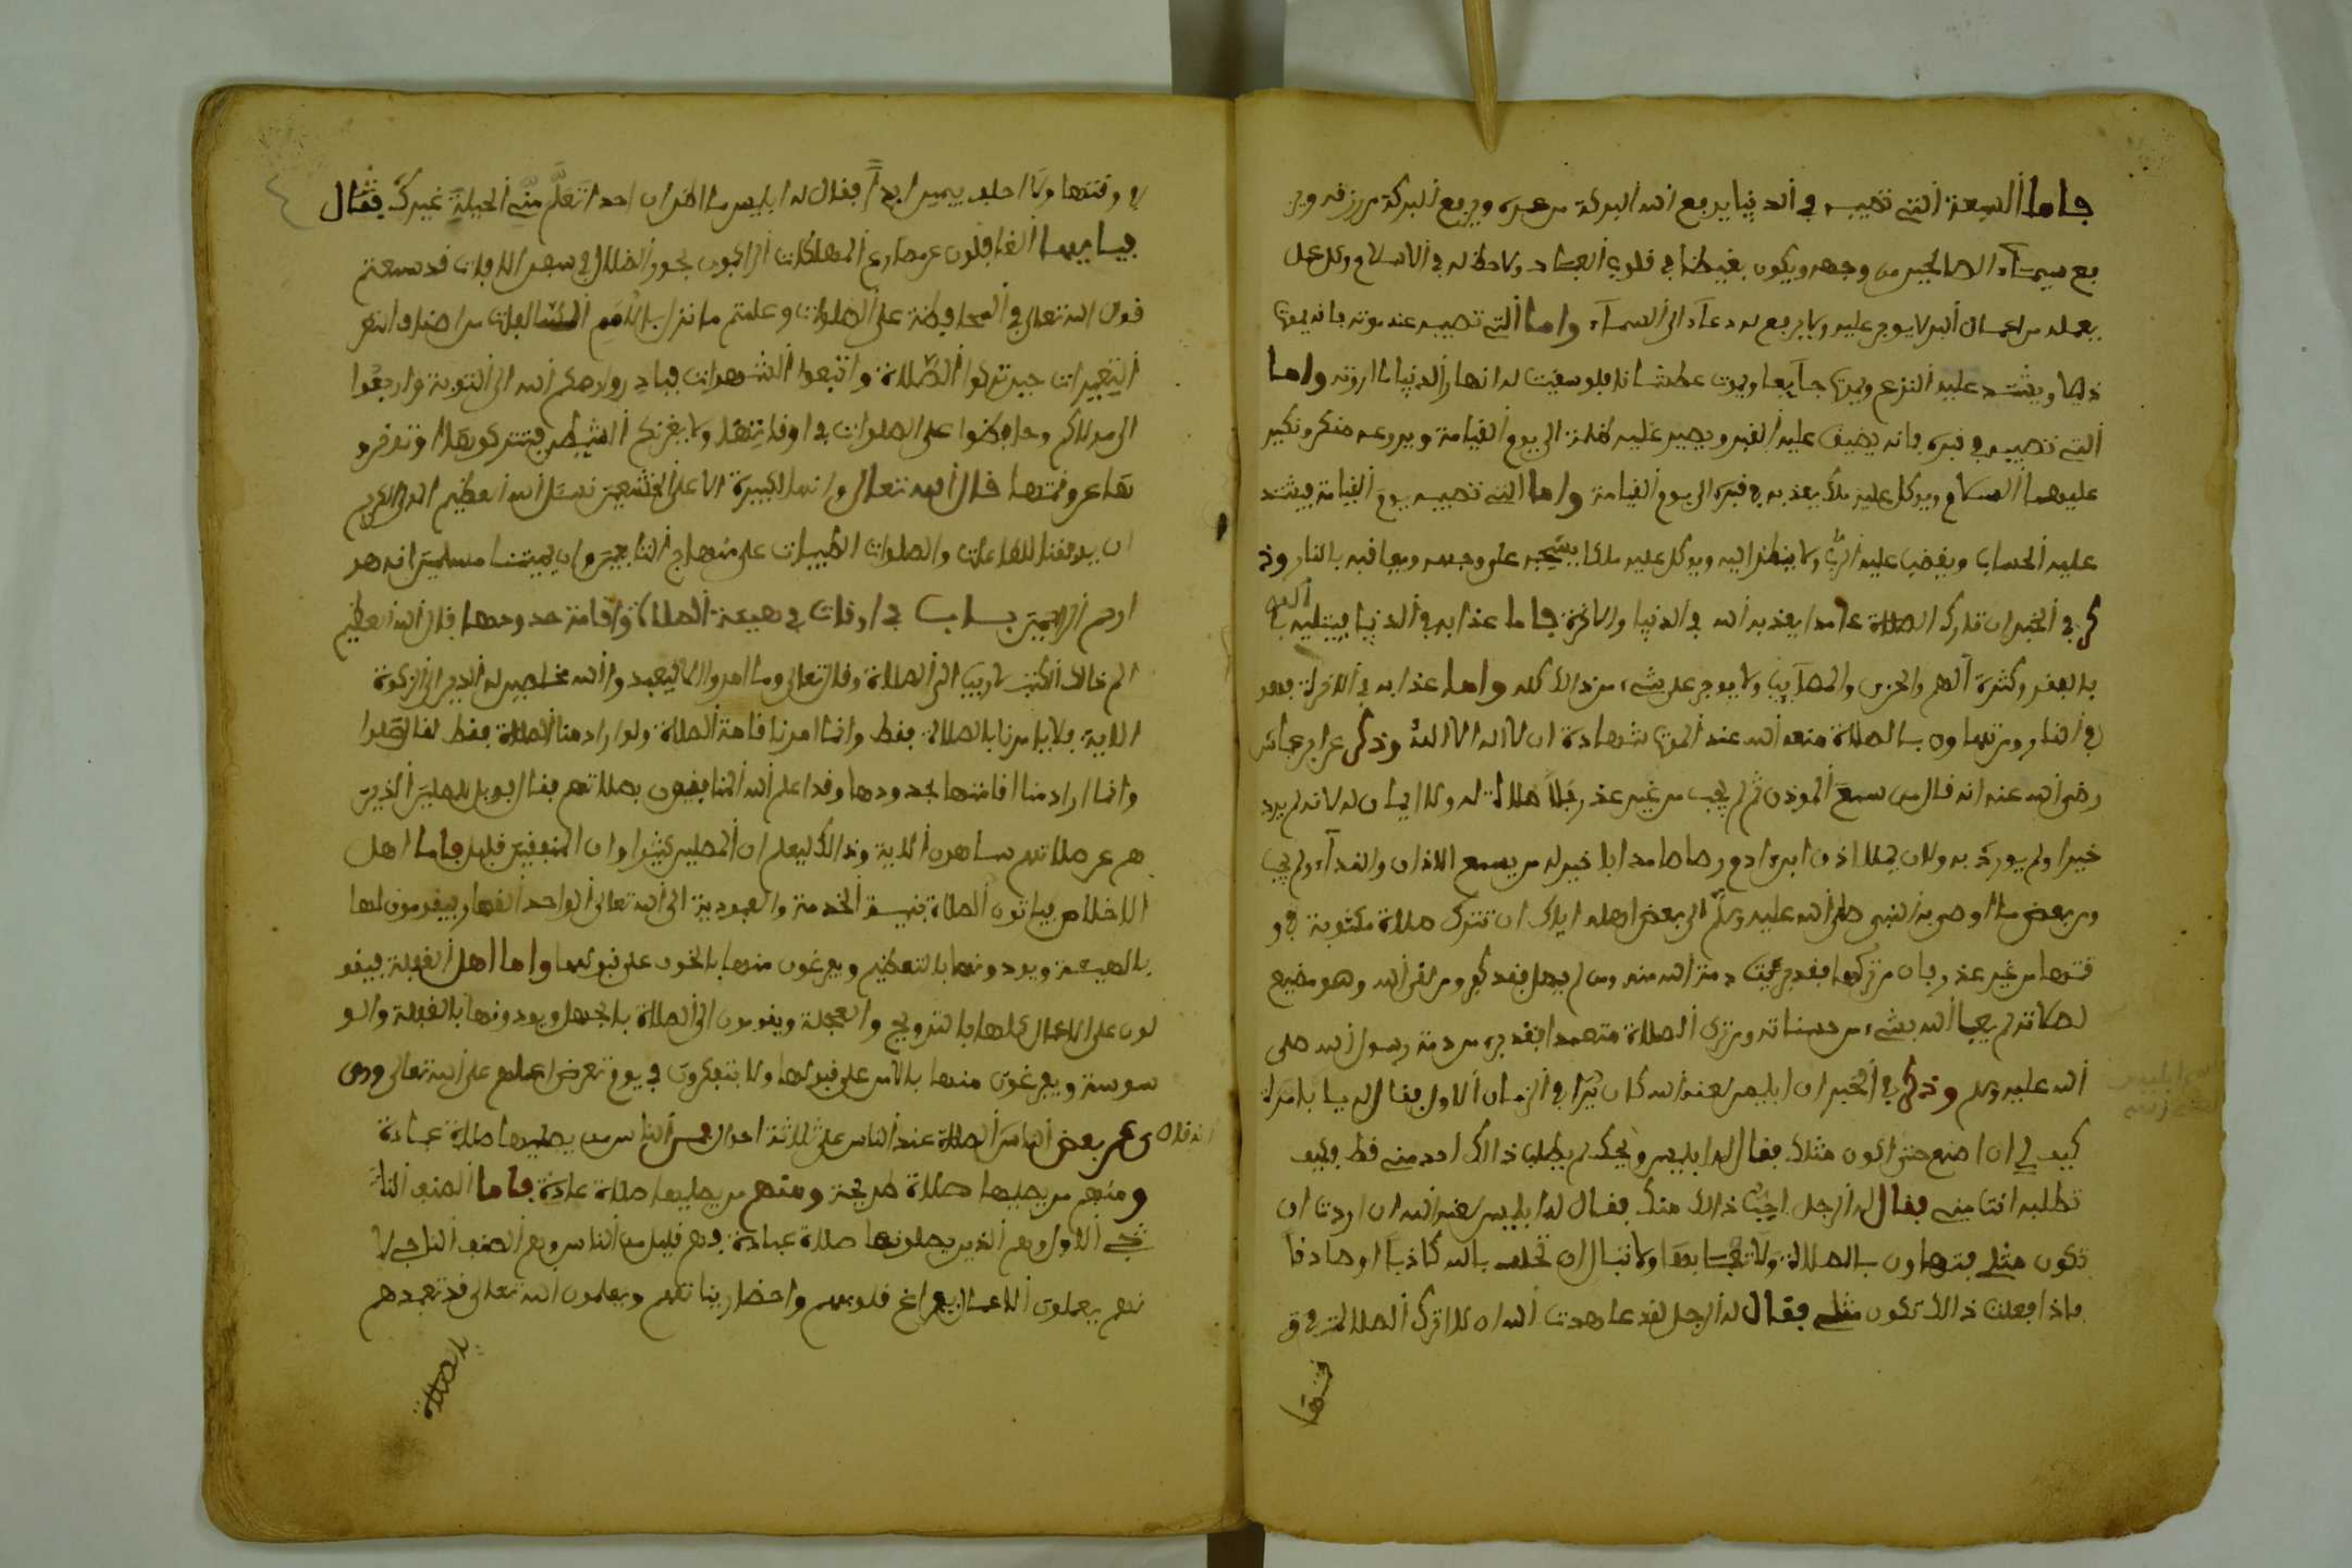 فاما السبعة التي تصيبه في الدنيا يرفع الله البركة من عمره ويرفع البركة من رزقه وير
فع سيماء الصالحين من وجهه ويكون بغيضا في قلوب العباد ولا حظ له في الاسلام وكل عمل
يعمله من اعمال البر لا يوجر عليه ولا يرفع له دعاء الى السماء واما التي تصيبه عند موته فانه يموت
ذليلا ويشتد عليه النزع ويموت جايعا ويموت عطشانا فلو سقيت له انهار الدنيا ما اروته واما
التي تصيبه في قبره فانه يضيق عليه القبر ويصير عليه ظلمة الى يوم القيامة ويروعه منكر ونكير
عليهما السلام ويوكل عليه ملك يعذبه في قبره الى يوم القيامة واما التي تصيبه يوم القيامة فيشتد
عليه الحساب ويغضب عليه الرب ولا ينظر اليه ويوكل عليه ملكا يسحبه على وجهه ويعاقبه بالنار وذ
كر في الخبر ان تارك الصلاة عامدا يعذبه الله في الدنيا والاخرة فاما عذابه في الدنيا فيبتليه الله
بالفقر وكثرة الهم والحزن والمصايب ولا يوجر على شيء من ذالك كله واما عذابه في الاخرة فهو
في النار ومن تهاون بالصلاة منعه الله عند الموت شهادة ان لا اله الا الله وذكر عن ابن عباس
رضي الله عنه انه قال من سمع الموذن ثم لم يجب من غير عذر فلا صلاة له ولا ايمان له لانه لم يرد
خيرا ولم يورد به ولان تملا اذن ابن ادم رصاصا مذابا خير له من يسمع الاذان والنداء ولم يجب
ومن بعض ما اوصى به النبي صلى الله عليه وسلم الى بعض اهله اياك ان تترك صلاة مكتوبة في و
قتها من غير عذر فان من تركها فقد برئت ذمة الله منه ومن لم يصل فقد كفر ومن لقي الله وهو مضيع
لصلاته لم يعبا الله بشيء من حسناته ومن ترك الصلاة متعمدا فقد برء من ذمة رسول الله صلى
الله عليه وسلم وذكر في الخبر ان ابليس لعنه الله كان يرا في الزمان الاول فقال له يا بامرة
كيف لي ان اصنع حتى اكون مثلك فقال له ابليس ويحك لم يطلب ذالك احد مني قط فكيف
تطلبه انت مني فقال له الرجل احب ذالك منك فقال له ابليس لعنه الله ان اردت ان
تكون مثلي فتهاون بالصلاة ولا تعبا بها ولا تبال ان تحلف بالله كاذبا او صادقا
فاذا فعلت ذالك تكون مثلي فقال له الرجل لقد عاهدت الله ان لا اترك الصلاة في و
قتها
في وقتها ولا احلف يمينا ابدا فقال له ابليس ما اظن ان احدا تعلم مني الحيلة غيرك فقال
فيا ايها الغافلون عن مصارع المهلكات الراكبون بحور الضلال في سفن الافات قد سمعتم
قول الله تعالى في المحافظة على الصلوات وعلمتم ما نزل بالامم السالفات من اصناف النعم
التغييرات حين تركوا الصلاة واتبعوا الشهوات فبادروا رحمكم الله الى التوبة وارجعوا
الى مولاكم وحافظوا على الصلوات في اوقاتها ولا يغرنكم الشيطن فتتركوها او تؤخرو
ها عن وقتها قال الله تعالى وانها لكبيرة الا على الخشعين نسئل الله العظيم المولى الكريم
ان يوفقنا للطاعات والصلوات الطيبات على منهاج التابعين وان يميتنا مسلمين انه هو
ارحم الرحمين باب في اوقات في هيئة الصلاة واقامة حدودها قال الله العظيم
الم ذالك الكتب لا ريب الى الصلاة وقال تعالى وما امروا الا ليعبدوا الله مخلصين له الدين الى الزكوة
الاية فلا يامرنا بالصلاة فقط وانما امرنا باقامة الصلاة ولو اراد منا الصلاة فقط لقال صلوا
وانما اراد منا اقامتها بحدودها وقد اعلم الله المنافقون بصلاتهم فقال فويل للمصلين الذين
هم عن صلاتهم ساهون الاية وذالك ليعلم ان المصلين كثيرا وان المقيمين قليل فاما اهل
الاخلاص فياتون الصلاة بنية الخدمة والعبودية الى الله تعالى الواحد القهار فيقومون لها
بالهيبة ويودونها بالتعظيم ويفرغون منها بالخوف على قبولها واما اهل الغفلة فيقو
لون على الاعمال كلها بالترويح والعجلة ويقومون الى الصلاة بالجهل ويودونها بالغفلة والو
سوسة ويفرغون منها بالامن على قبولها ولا يتفكرون في يوم تعرض اعمالهم على الله تعالى وروى
عن بعض الناس انه قال الصلاة عند الناس على ثلاثة احوال فمن الناس من يصليها صلاة عبادة
ومنهم من يصليها صلاة طريحة ومنهم من يصليها صلاة عادة فاما الصنف النا
جي الاول وهم الذين يصلونها صلاة عبادة وهم قليل من الناس وهم الصنف الناجي لا
نهم يعملون الاعمال بفراغ قلوبهم واحضار نياتهم ويعلمون الله تعالى قد تعبدهم
بالصلاة